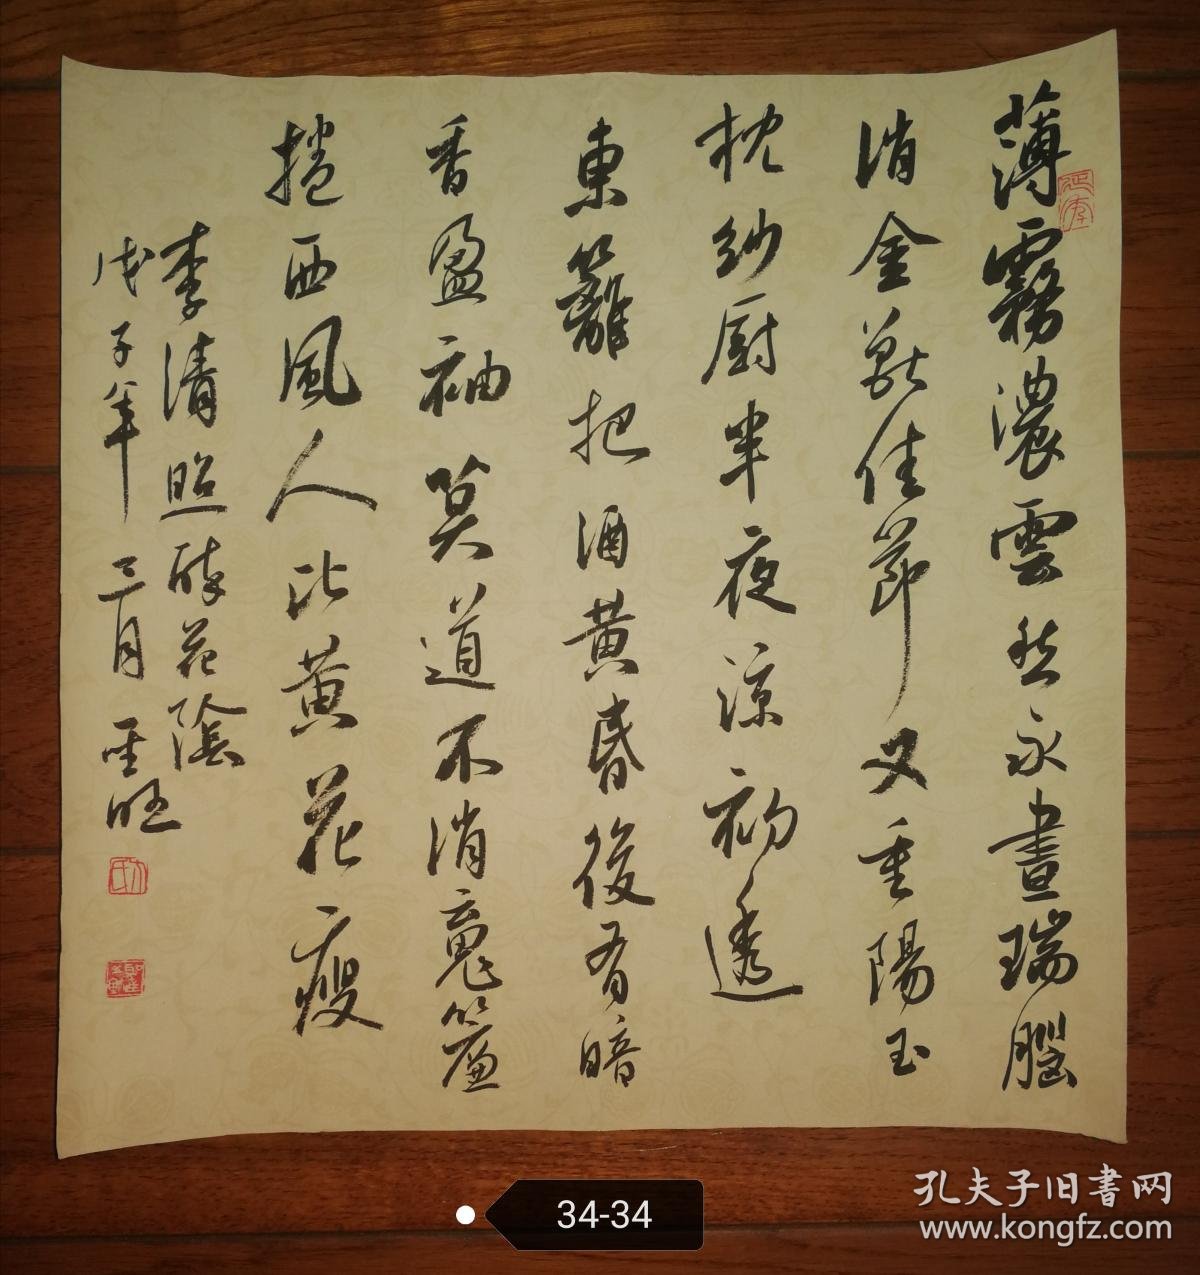 薄霧濃雲愁永晝瑞腦
消金獸佳節又重陽玉
枕紗厨半夜涼初透
東籬把酒黄昏後有暗
香盈袖莫道不消魂簾
捲西風人比黄花瘦
李清照醉花陰
戊子年三月聖旺
孔夫子旧書网
www.kongfz.com
34-34